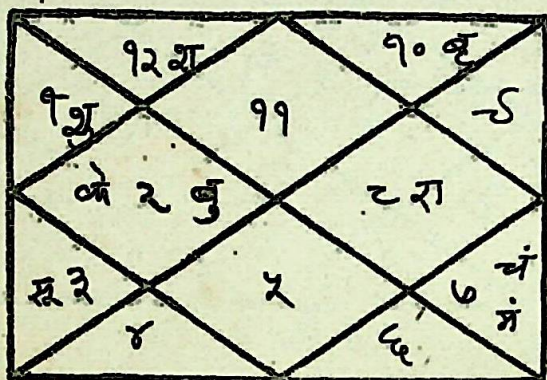 १२ श १० बृ
१ शु ११ ९
के २ बु ८ रा
सू ३ ५ ७ चं
मं
४ ६